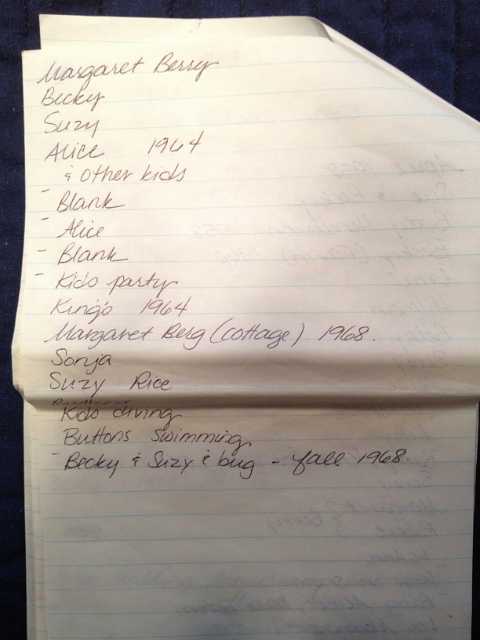 Margaret Berry
Becky
Suzy
Alice 1964
& Other kids
- Blank
- Alice
- Blank
- Kids party
King's 1964
Margaret Berg (cottage) 1968.
Sonja
Suzy Rice
Kids diving
Buttons Swimming
- Becky & Suzy & bug - fall 1968